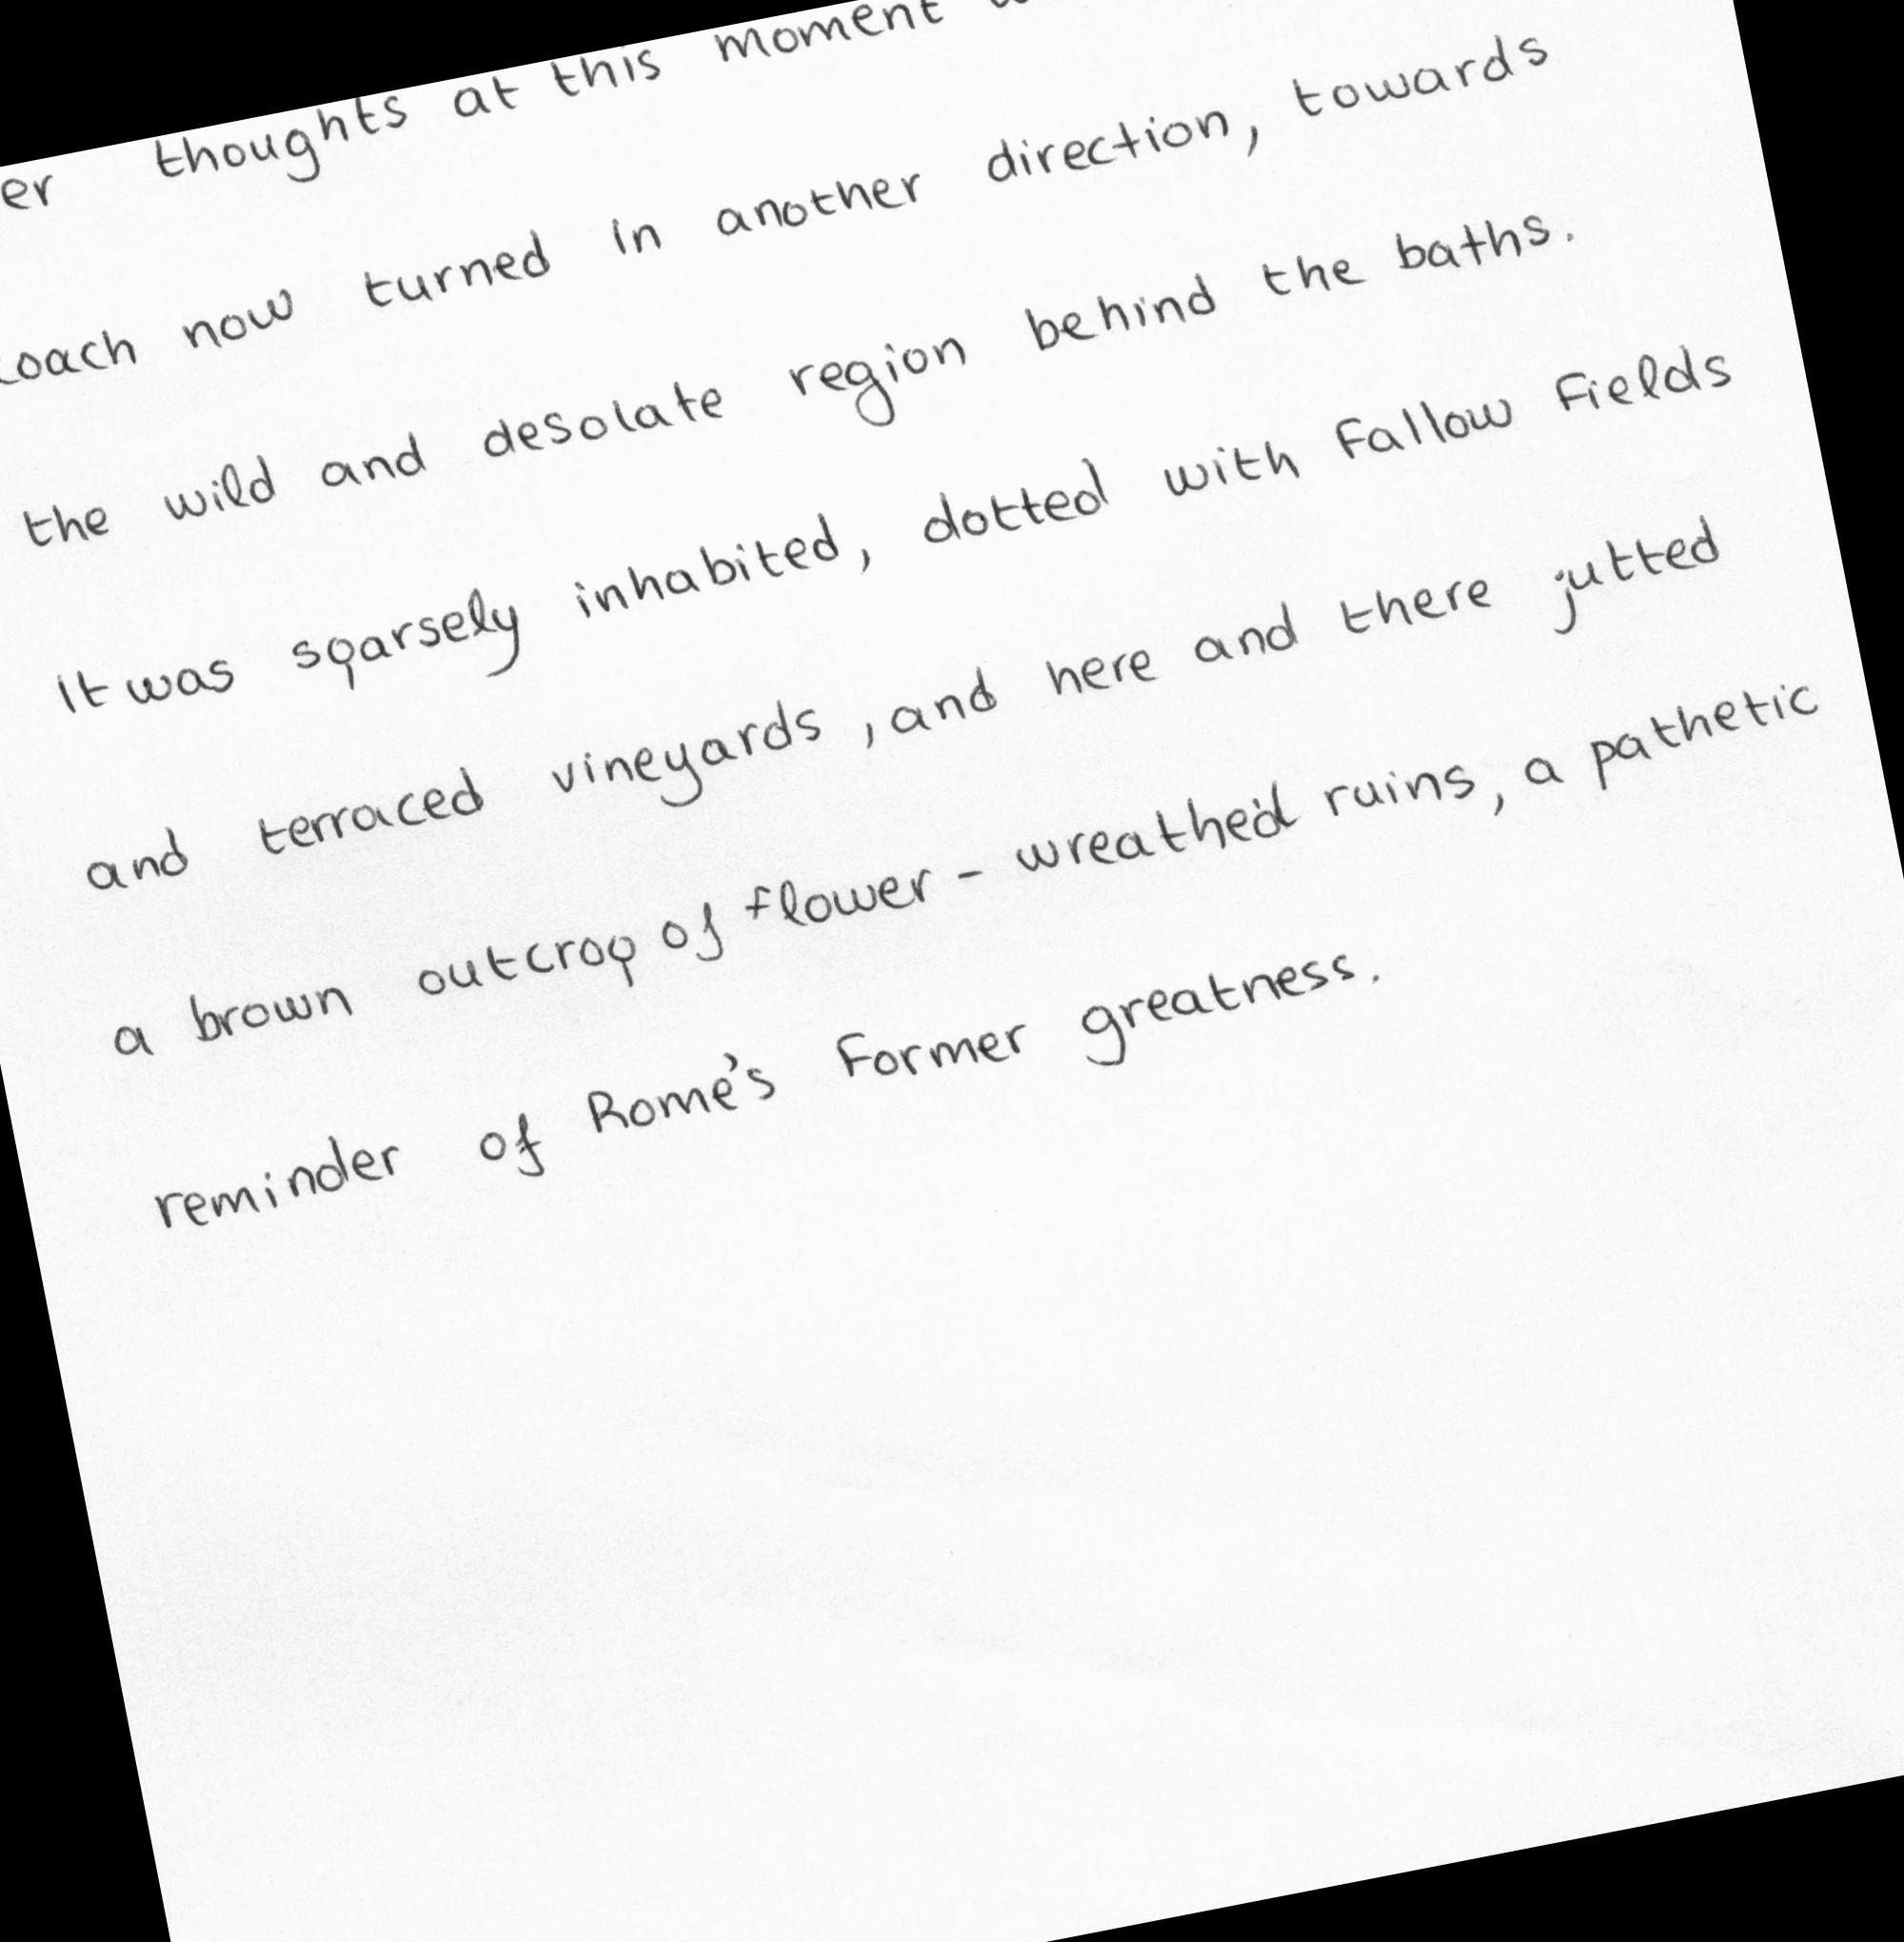 thoughts at this moment
coach now turned in another direction, towards
the wild and desolate region behind the baths.
It was sparsely inhabited, dotted with fallow fields
and terraced vineyards, and here and there jutted
a brown outcrop of flower - wreathed ruins, a pathetic
reminder of Rome's former greatness.